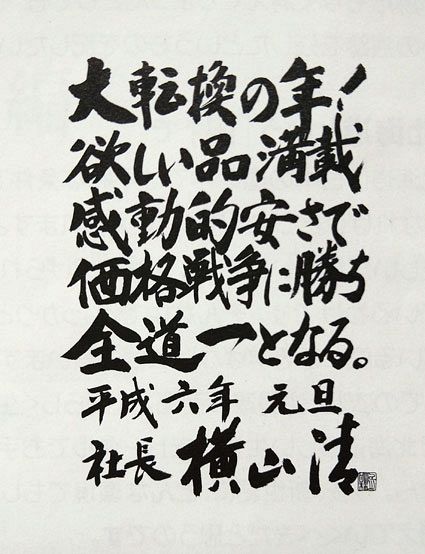 大転換の年！
欲しい品満載
感動的安さで
価格戦争に勝ち
全道一となる。
平成六年 元旦
社長 横山清